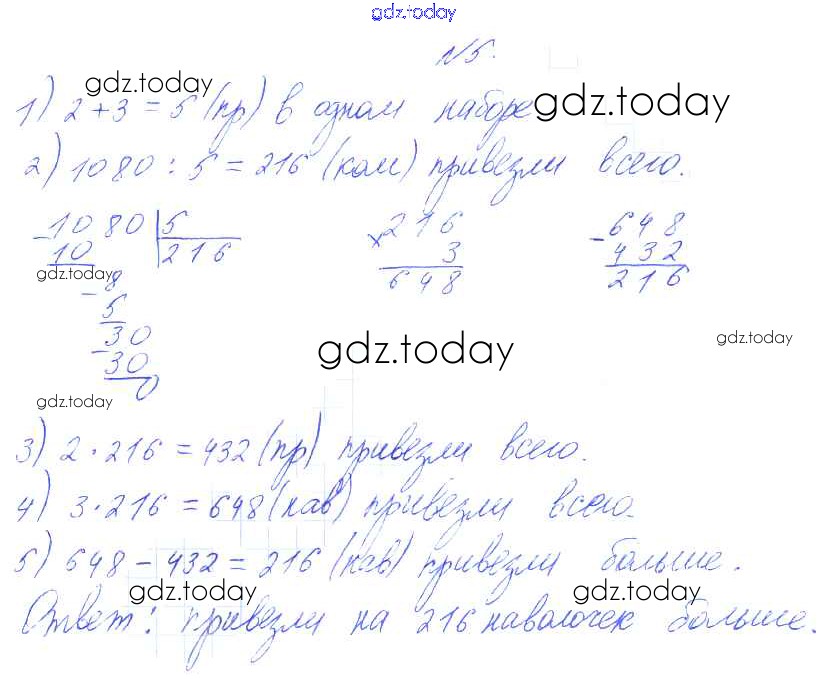 gdz.today
№5.
gdz.today
1) 2 + 3 = 5 (пр) в одном наборе
gdz.today
2) 1080 : 5 = 216 (ком) привезли всего.
1080 | 5 216 648
- 10 216 × 3 - 432
gdz.today 648 216
- 8
5
30
- 30 gdz.today gdz.today
0
gdz.today
3) 2 · 216 = 432 (пр) привезли всего.
4) 3 · 216 = 648 (нав) привезли всего.
5) 648 - 432 = 216 (нав) привезли больше.
gdz.today gdz.today gdz.today
Ответ: привезли на 216 наволочек больше.